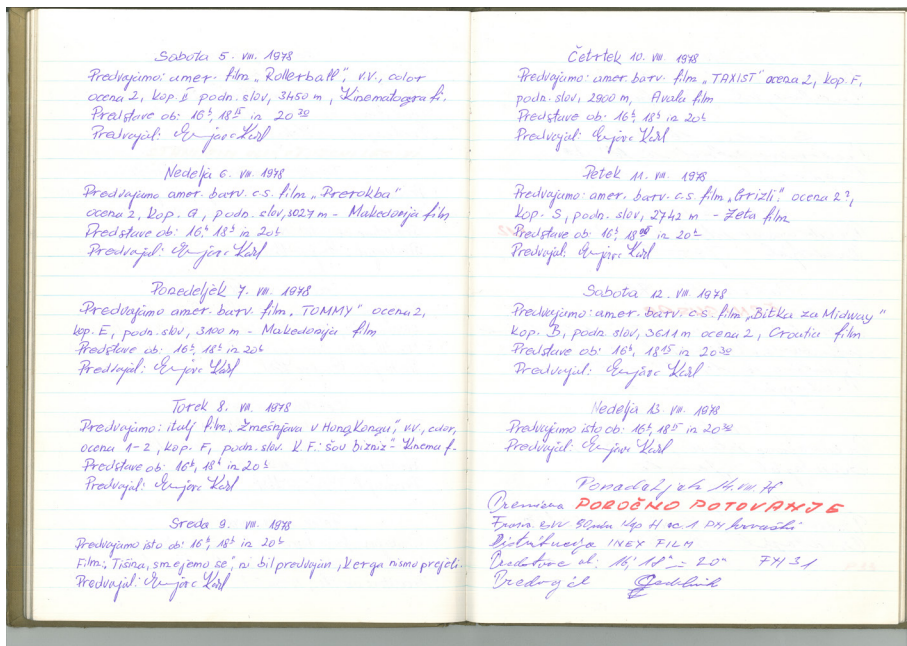 Sobota 5. VIII. 1978
Predvajamo: amer. film „Rollerball", v.v., color
ocena 2, kop. II podn. slov, 3450 m, Kinematogra fi.
Predstave ob: 16ʰ, 18¹⁵ in 20³⁰
Predvajal: Karl
Nedelja 6. VIII. 1978
Predvajamo amer. barv. c.s. film „Prerokba"
ocena 2, kop. G, podn. slov, 3027 m - Makedonija film
Predstave ob: 16ʰ, 18ʰ in 20ʰ
Predvajal: Karl
Ponedeljek 7. VIII. 1978
Predvajamo amer. barv. film „TOMMY" ocena 2,
kop. E, podn. slov, 3100 m - Makedonija film
Predstave ob: 16ʰ, 18ʰ in 20ʰ
Predvajal: Karl
Torek 8. VIII. 1978
Predvajamo: italj film „Zmešnjava v Hong Kongu", v.v., color,
ocena 1-2, kop. F, podn. slov. K.F.: šov bizniz - Kinema f.
Predstave ob: 16ʰ, 18ʰ in 20ʰ
Predvajal: Karl
Sreda 9. VIII. 1978
Predvajamo isto ob: 16ʰ, 18ʰ in 20ʰ
Film: „Tišina, smejemo se", ni bil predvajan, ker ga nismo prejeli.
Predvajal: Karl
Četrtek 10. VIII. 1978
Predvajamo: amer. barv. film „TAXIST" ocena 2, kop. F,
podn. slov, 2900 m, Avala film
Predstave ob: 16ʰ, 18ʰ in 20ʰ
Predvajal: Karl
Petek 11. VIII. 1978
Predvajamo: amer. barv. c.s. film „Grizli", ocena 2?,
kop. S, podn. slov, 2742 m - Zeta film
Predstave ob: 16ʰ, 18⁰⁰ in 20ʰ
Predvajal: Karl
Sobota 12. VIII. 1978
Predvajamo: amer. barv c.s. film „Bitka za Midway"
kop. B, podn. slov, 3611 m ocena 2, Croatia film
Predstave ob: 16ʰ, 18¹⁵ in 20³⁰
Predvajal: Karl
Nedelja 13. VIII. 1978
Predvajamo isto ob: 16ʰ, 18¹⁵ in 20³⁰
Predvajal: Karl
Ponedeljek 14. VIII. 78
Premiera POROČNO POTOVANJE
Franc. kop H oc. 1 PN hrvaški
Distribucija INEX FILM
Predstave ob: 16, 18ʰ 20ʰ
Predvajal